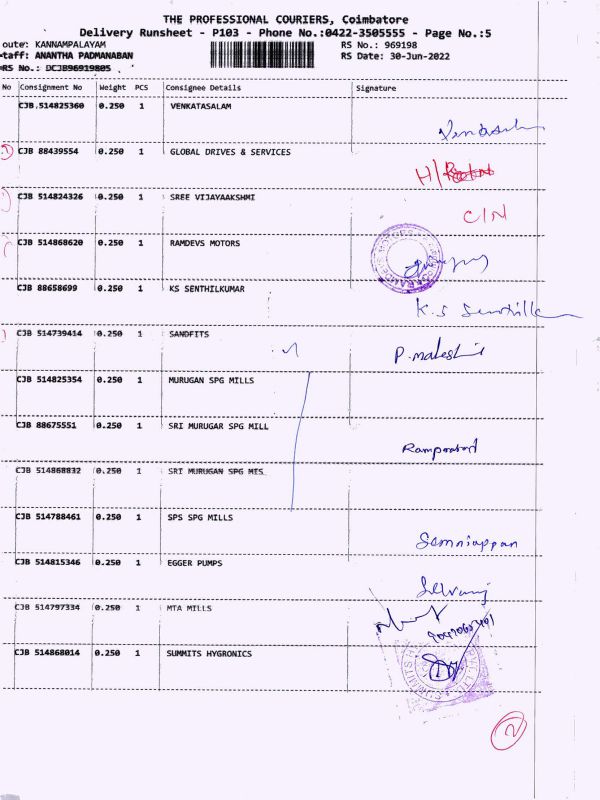 THE PROFESSIONAL COURIERS, Coimbatore
Delivery Runsheet - P103 - Phone No.:0422-3505555 - Page No.:5
oute: KANNAMPALAYAM RS No.: 969198
taff: ANANTHA PADMANABAN RS Date: 30-Jun-2022
RS No.: DCJB96919805
No Consignment No Weight PCS Consignee Details Signature
CJB 514825360 0.250 1 VENKATASALAM
CJB 88439554 0.250 1 GLOBAL DRIVES & SERVICES
H/
CJB 514824326 0.250 1 SREE VIJAYAAKSHMI
C/N
CJB 514868620 0.250 1 RAMDEVS MOTORS
CJB 88658699 0.250 1 KS SENTHILKUMAR
K.S
CJB 514739414 0.250 1 SANDFITS
CJB 514825354 0.250 1 MURUGAN SPG MILLS
CJB 88675551 0.250 1 SRI MURUGAR SPG MILL
CJB 514868832 0.250 1 SRI MURUGAN SPG MIS
CJB 514788461 0.250 1 SPS SPG MILLS
CJB 514815346 0.250 1 EGGER PUMPS
CJB 514797334 0.250 1 MTA MILLS
CJB 514868014 0.250 1 SUMMITS HYGRONICS
2